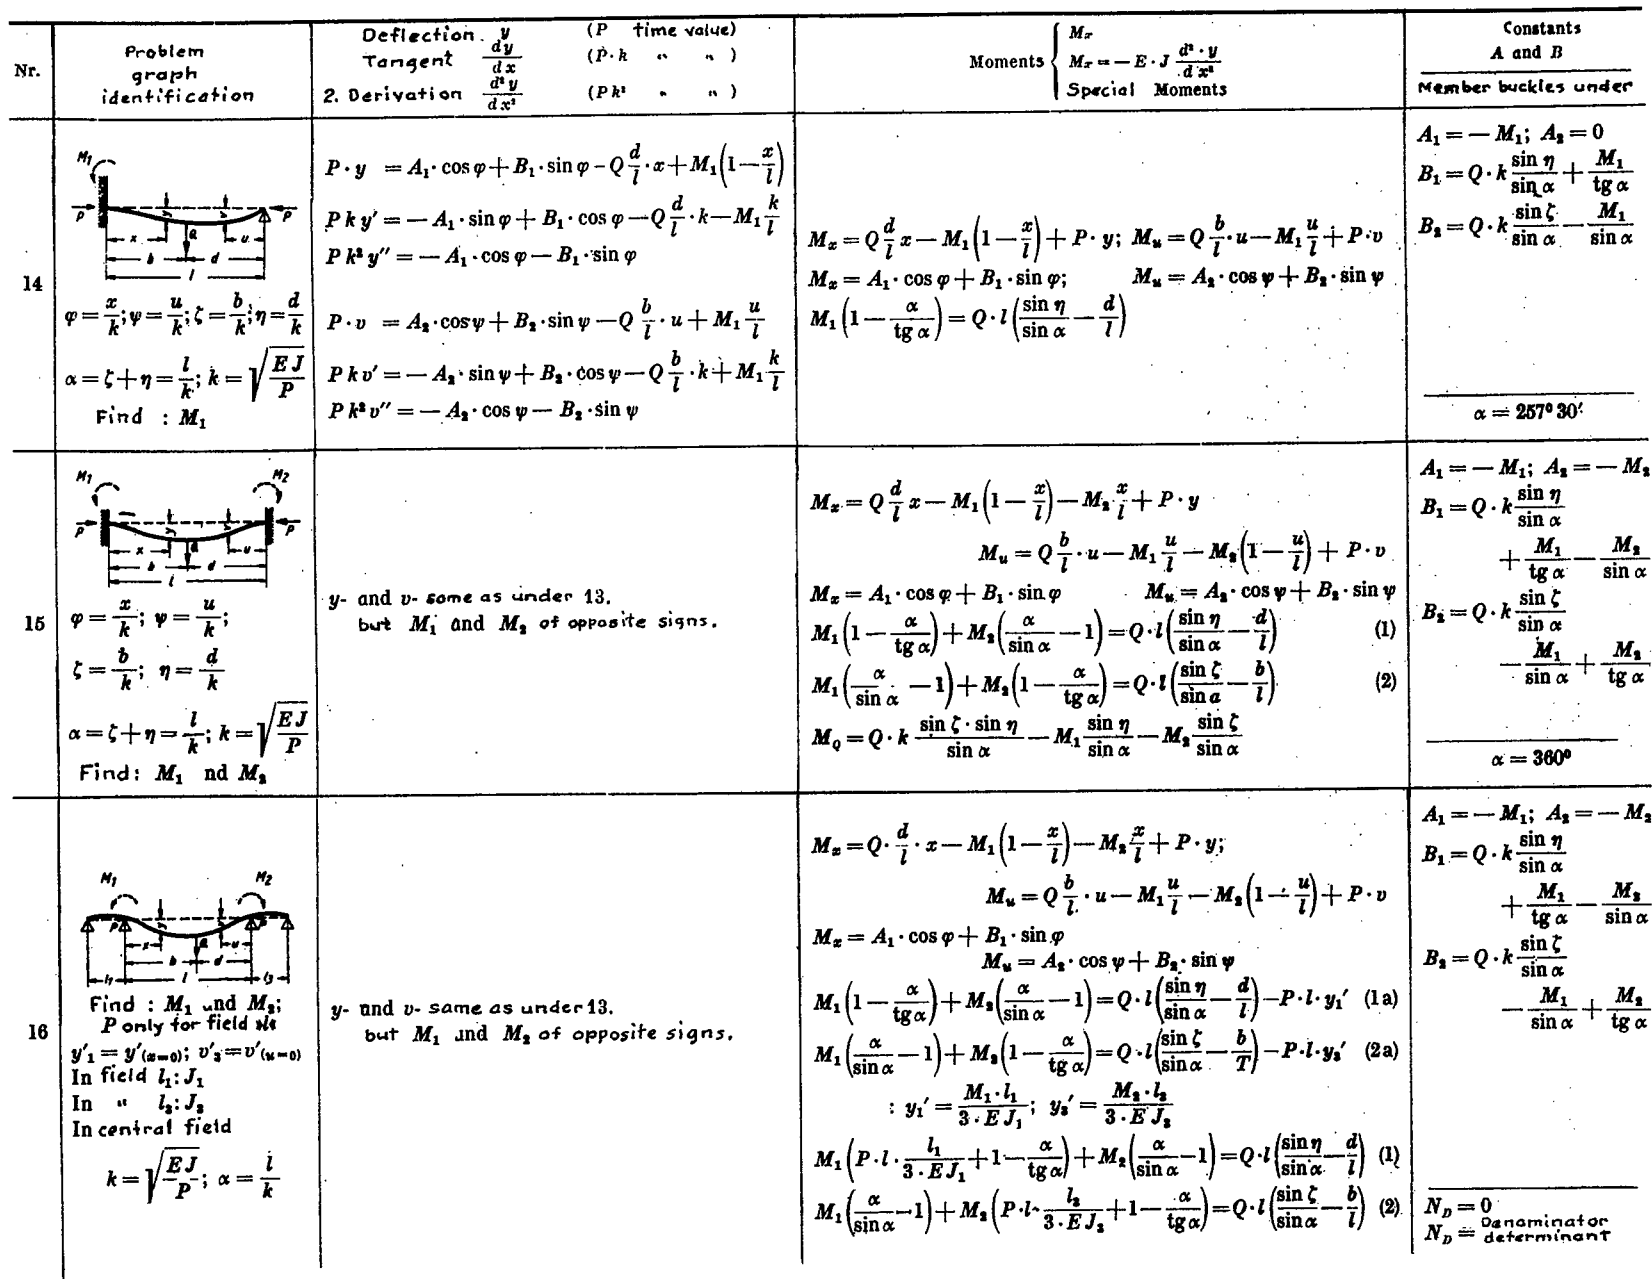 Nr.
Problem
graph
identification
Deflection. y (P time value)
Tangent dy/dx (P·k " " )
2. Derivation d²y/dx² (Pk² " " )
Moments { M_x
M_x = − E · J d²·y/d x²
Special Moments
Constants
A and B
Member buckles under
14
M₁
P P
x Q u
b d
l
φ = x/k; ψ = u/k; ζ = b/k; η = d/k
α = ζ + η = l/k; k = √(E J/P)
Find : M₁
P · y = A₁ · cos φ + B₁ · sin φ − Q d/l · x + M₁ (1 − x/l)
P k y′ = − A₁ · sin φ + B₁ · cos φ − Q d/l · k − M₁ k/l
P k² y″ = − A₁ · cos φ − B₁ · sin φ
P · v = A₂ · cos ψ + B₂ · sin ψ − Q b/l · u + M₁ u/l
P k v′ = − A₂ · sin ψ + B₂ · cos ψ − Q b/l · k + M₁ k/l
P k² v″ = − A₂ · cos ψ − B₂ · sin ψ
M_x = Q d/l x − M₁ (1 − x/l) + P · y; M_u = Q b/l · u − M₁ u/l + P · v
M_x = A₁ · cos φ + B₁ · sin φ; M_u = A₂ · cos ψ + B₂ · sin ψ
M₁ (1 − α/tg α) = Q · l (sin η/sin α − d/l)
A₁ = − M₁; A₂ = 0
B₁ = Q · k sin η/sin α + M₁/tg α
B₂ = Q · k sin ζ/sin α − M₁/sin α
α = 257° 30′
15
M₁ M₂
P P
x Q u
b d
l
φ = x/k; ψ = u/k;
ζ = b/k; η = d/k
α = ζ + η = l/k; k = √(E J/P)
Find: M₁ nd M₂
y- and v- same as under 13.
but M₁ and M₂ of opposite signs.
M_x = Q d/l x − M₁ (1 − x/l) − M₂ x/l + P · y
M_u = Q b/l · u − M₁ u/l − M₂ (1 − u/l) + P · v
M_x = A₁ · cos φ + B₁ · sin φ M_u = A₂ · cos ψ + B₂ · sin ψ
M₁ (1 − α/tg α) + M₂ (α/sin α − 1) = Q · l (sin η/sin α − d/l) (1)
M₁ (α/sin α − 1) + M₂ (1 − α/tg α) = Q · l (sin ζ/sin a − b/l) (2)
M_Q = Q · k sin ζ · sin η/sin α − M₁ sin η/sin α − M₂ sin ζ/sin α
A₁ = − M₁; A₂ = − M₂
B₁ = Q · k sin η/sin α
+ M₁/tg α − M₂/sin α
B₂ = Q · k sin ζ/sin α
− M₁/sin α + M₂/tg α
α = 360°
16
M₁ M₂
P P
x Q u
b d
l₁ l l₃
Find : M₁ und M₂;
P only for field
y′₁ = y′(x=0); v′₂ = v′(u=0)
In field l₁: J₁
In " l₂: J₂
In central field
k = √(E J/P); α = l/k
y- and v- same as under 13.
but M₁ and M₂ of opposite signs.
M_x = Q · d/l · x − M₁ (1 − x/l) − M₂ x/l + P · y;
M_u = Q b/l · u − M₁ u/l − M₂ (1 − u/l) + P · v
M_x = A₁ · cos φ + B₁ · sin φ
M_u = A₂ · cos ψ + B₂ · sin ψ
M₁ (1 − α/tg α) + M₂ (α/sin α − 1) = Q · l (sin η/sin α − d/l) − P · l · y₁′ (1a)
M₁ (α/sin α − 1) + M₂ (1 − α/tg α) = Q · l (sin ζ/sin α − b/T) − P · l · y₂′ (2a)
: y₁′ = M₁ · l₁/3 · E J₁; y₂′ = M₂ · l₂/3 · E J₂
M₁ (P · l · l₁/3 · E J₁ + 1 − α/tg α) + M₂ (α/sin α − 1) = Q · l (sin η/sin α − d/l) (1)
M₁ (α/sin α − 1) + M₂ (P · l · l₂/3 · E J₂ + 1 − α/tg α) = Q · l (sin ζ/sin α − b/l) (2)
A₁ = − M₁; A₂ = − M₂
B₁ = Q · k sin η/sin α
+ M₁/tg α − M₂/sin α
B₂ = Q · k sin ζ/sin α
− M₁/sin α + M₂/tg α
N_D = 0
N_D = Denominator
determinant